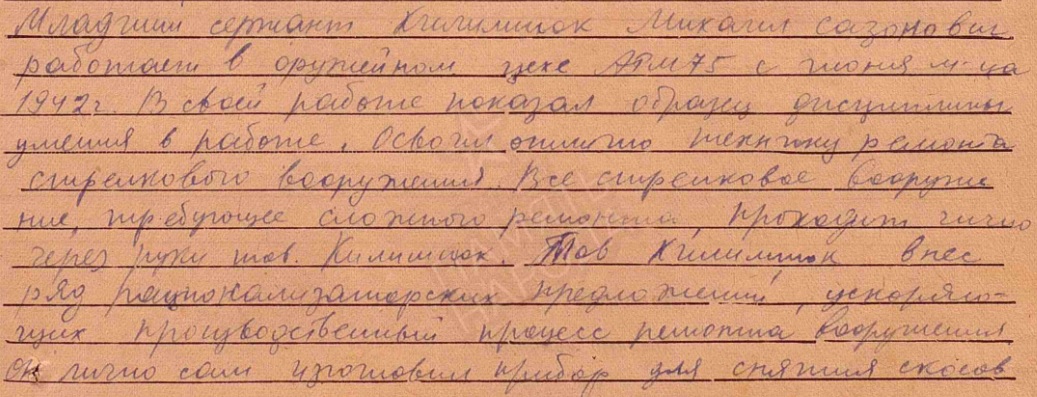 Младший сержант Хилимнюк Михаил Сазонович
работает в оружейном цехе АРМ 75 с июня м-ца
1942г. В своей работе показал образец дисциплины
умения в работе. Освоил отлично технику ремонта
стрелкового вооружения. Все стрелковое вооруже
ние, требующее сложного ремонта, проходит лично
через руки тов. Хилимнюк. Тов Хилимнюк внес
ряд рационализаторских предложений, ускоряю-
щих производственный процесс ремонта вооружения
Он лично сам изготовил прибор для снятия скосов